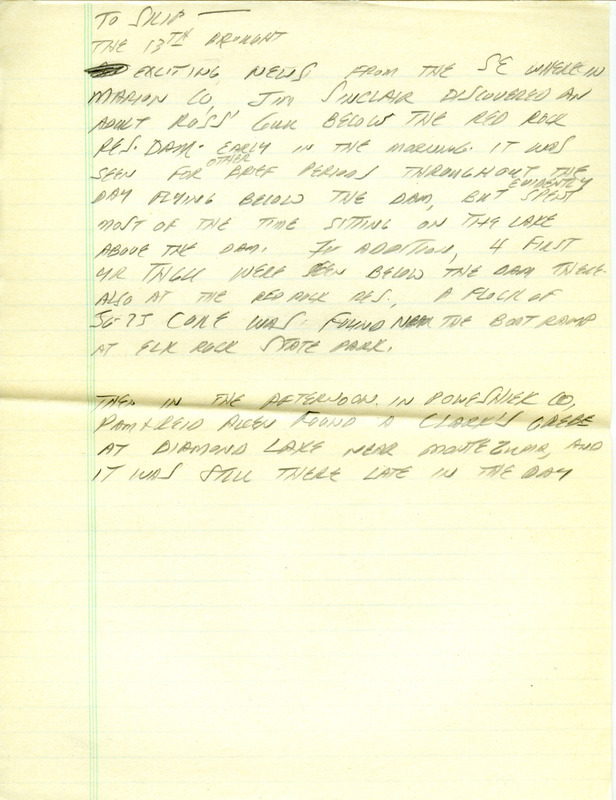 TO SKIP —
THE 13TH BROUGHT
EXCITING NEWS FROM THE SE WHERE IN
MARION CO, JIM SINCLAIR DISCOVERED AN
ADULT ROSS' GULL BELOW THE RED ROCK
RES. DAM. EARLY IN THE MORNING. IT WAS
SEEN FOR OTHER BRIEF PERIODS THROUGHOUT THE
DAY FLYING BELOW THE DAM, BUT EVIDENTLY SPENT
MOST OF THE TIME SITTING ON THE LAKE
ABOVE THE DAM. IN ADDITION, 4 FIRST
YR THGU WERE SEEN BELOW THE DAM THERE.
ALSO AT THE RED ROCK RES., A FLOCK OF
50-75 CORE WAS FOUND NEAR THE BOAT RAMP
AT ELK ROCK STATE PARK.
THEN IN THE AFTERNOON IN POWESHIEK CO,
PAM & REID ALLEN FOUND A CLARK'S GREBE
AT DIAMOND LAKE NEAR MONTEZUMA, AND
IT WAS STILL THERE LATE IN THE DAY